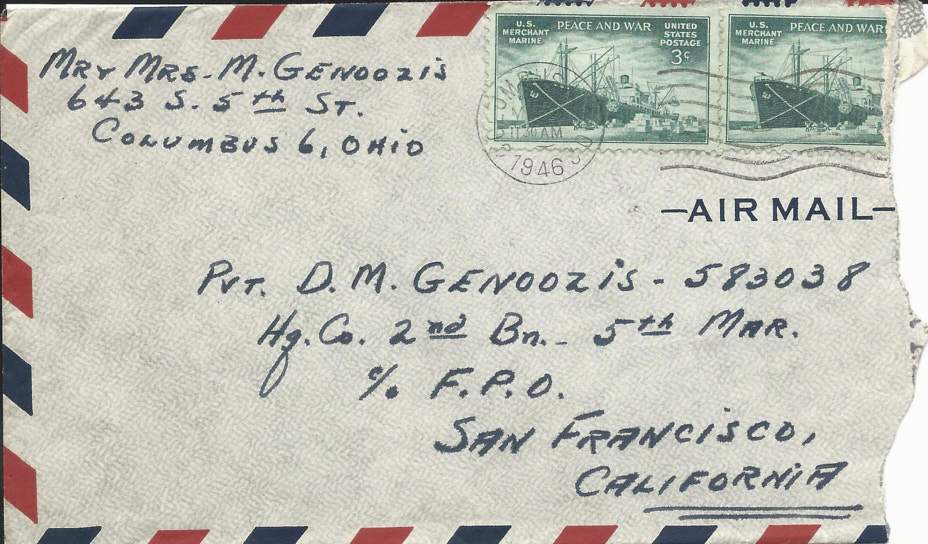 Mr & Mrs. M. Genoozis
643 S. 5th St.
Columbus 6, Ohio
U.S. MERCHANT MARINE PEACE AND WAR UNITED STATES POSTAGE 3¢
U.S. MERCHANT MARINE PEACE AND WAR
11 30 AM
1946
—AIR MAIL—
Pvt. D. M. Genoozis - 583038
Hq. Co. 2nd Bn. - 5th Mar.
c/o F.P.O.
San Francisco,
California